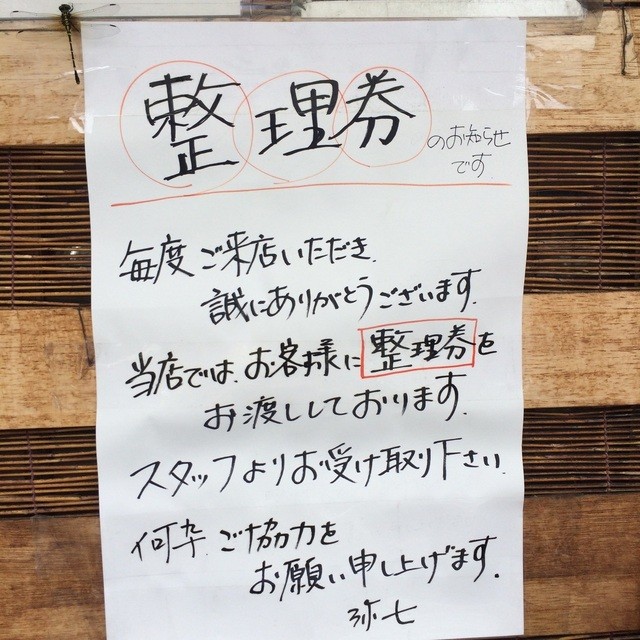 整理券のお知らせ
です
毎度ご来店いただき
誠にありがとうございます。
当店では、お客様に整理券を
お渡ししております。
スタッフよりお受け取り下さい。
何卒、ご協力を
お願い申し上げます。
弥七